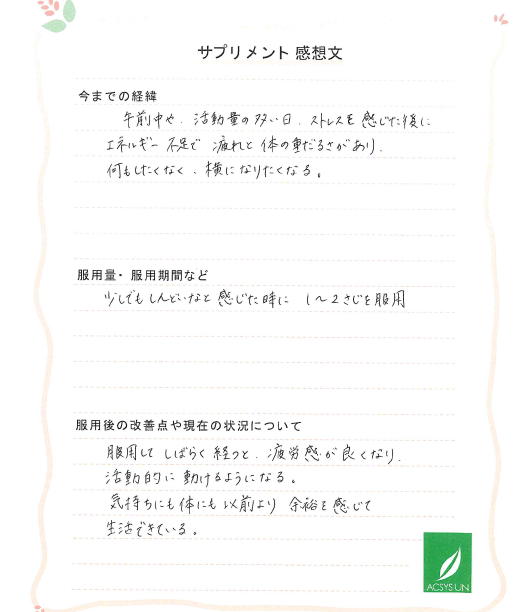 サプリメント 感想文
今までの経緯
午前中や、活動量の多い日、ストレスを感じた後に
エネルギー不足で 疲れと体の重だるさがあり、
何もしたくなく、横になりたくなる。
服用量・服用期間など
少しでもしんどいなと感じた時に 1〜2さじを服用
服用後の改善点や現在の状況について
服用してしばらく経つと、疲労感が良くなり、
活動的に動けるようになる。
気持ちにも体にも以前より 余裕を感じて
生活できている。
ACSYS UN